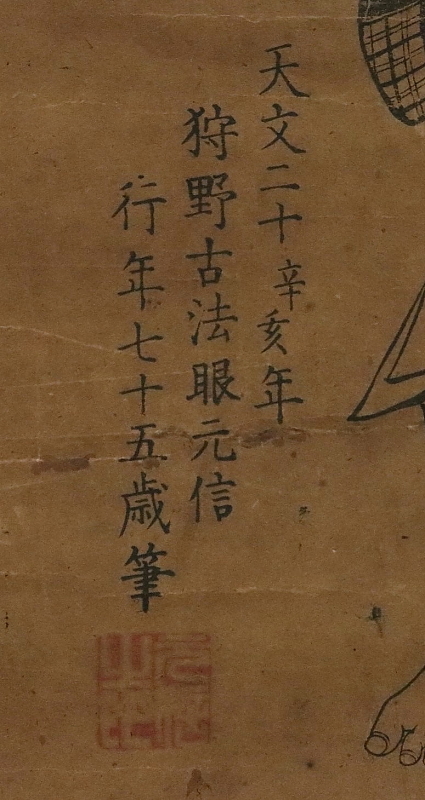 天文二十辛亥年
狩野古法眼元信
行年七十五歳筆